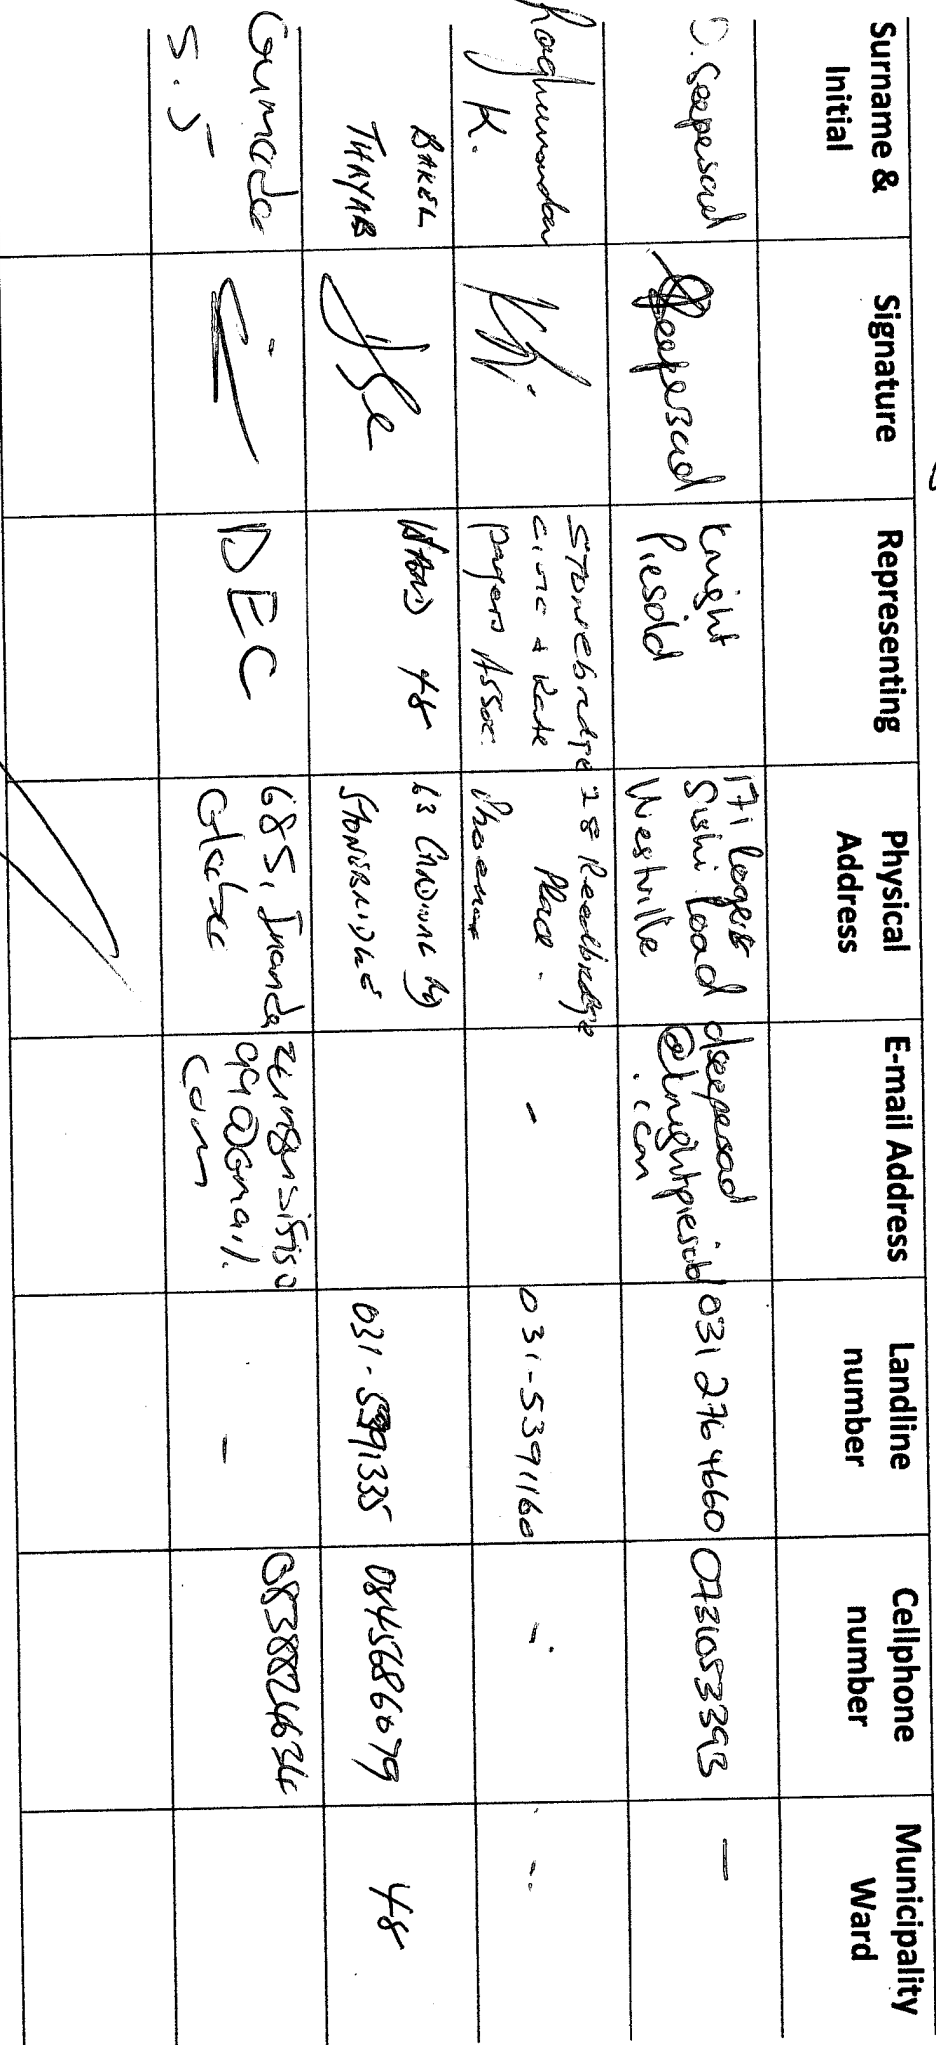 Surname & Initial
Signature
Representing
Physical Address
E-mail Address
Landline number
Cellphone number
Municipality Ward
D. Seepersad
Seepersad
Knight
Piesold
Road
Westville
dseepersad
@knightpiesold
.com
031 276 4660
0731053393
-
K.
Stonebridge
civic & Rate
payers Assoc.
28 Reedbridge
Place.
Phoenix
-
031-5391160
-
-
THAYAB
WARD 48
63 CARDINAL RD
STONEBRIDGE
031-5391335
0845686079
48
Gumede
S.S
DEC
685, Inanda
zungusifiso
99@Gmail.
com
-
0838824634